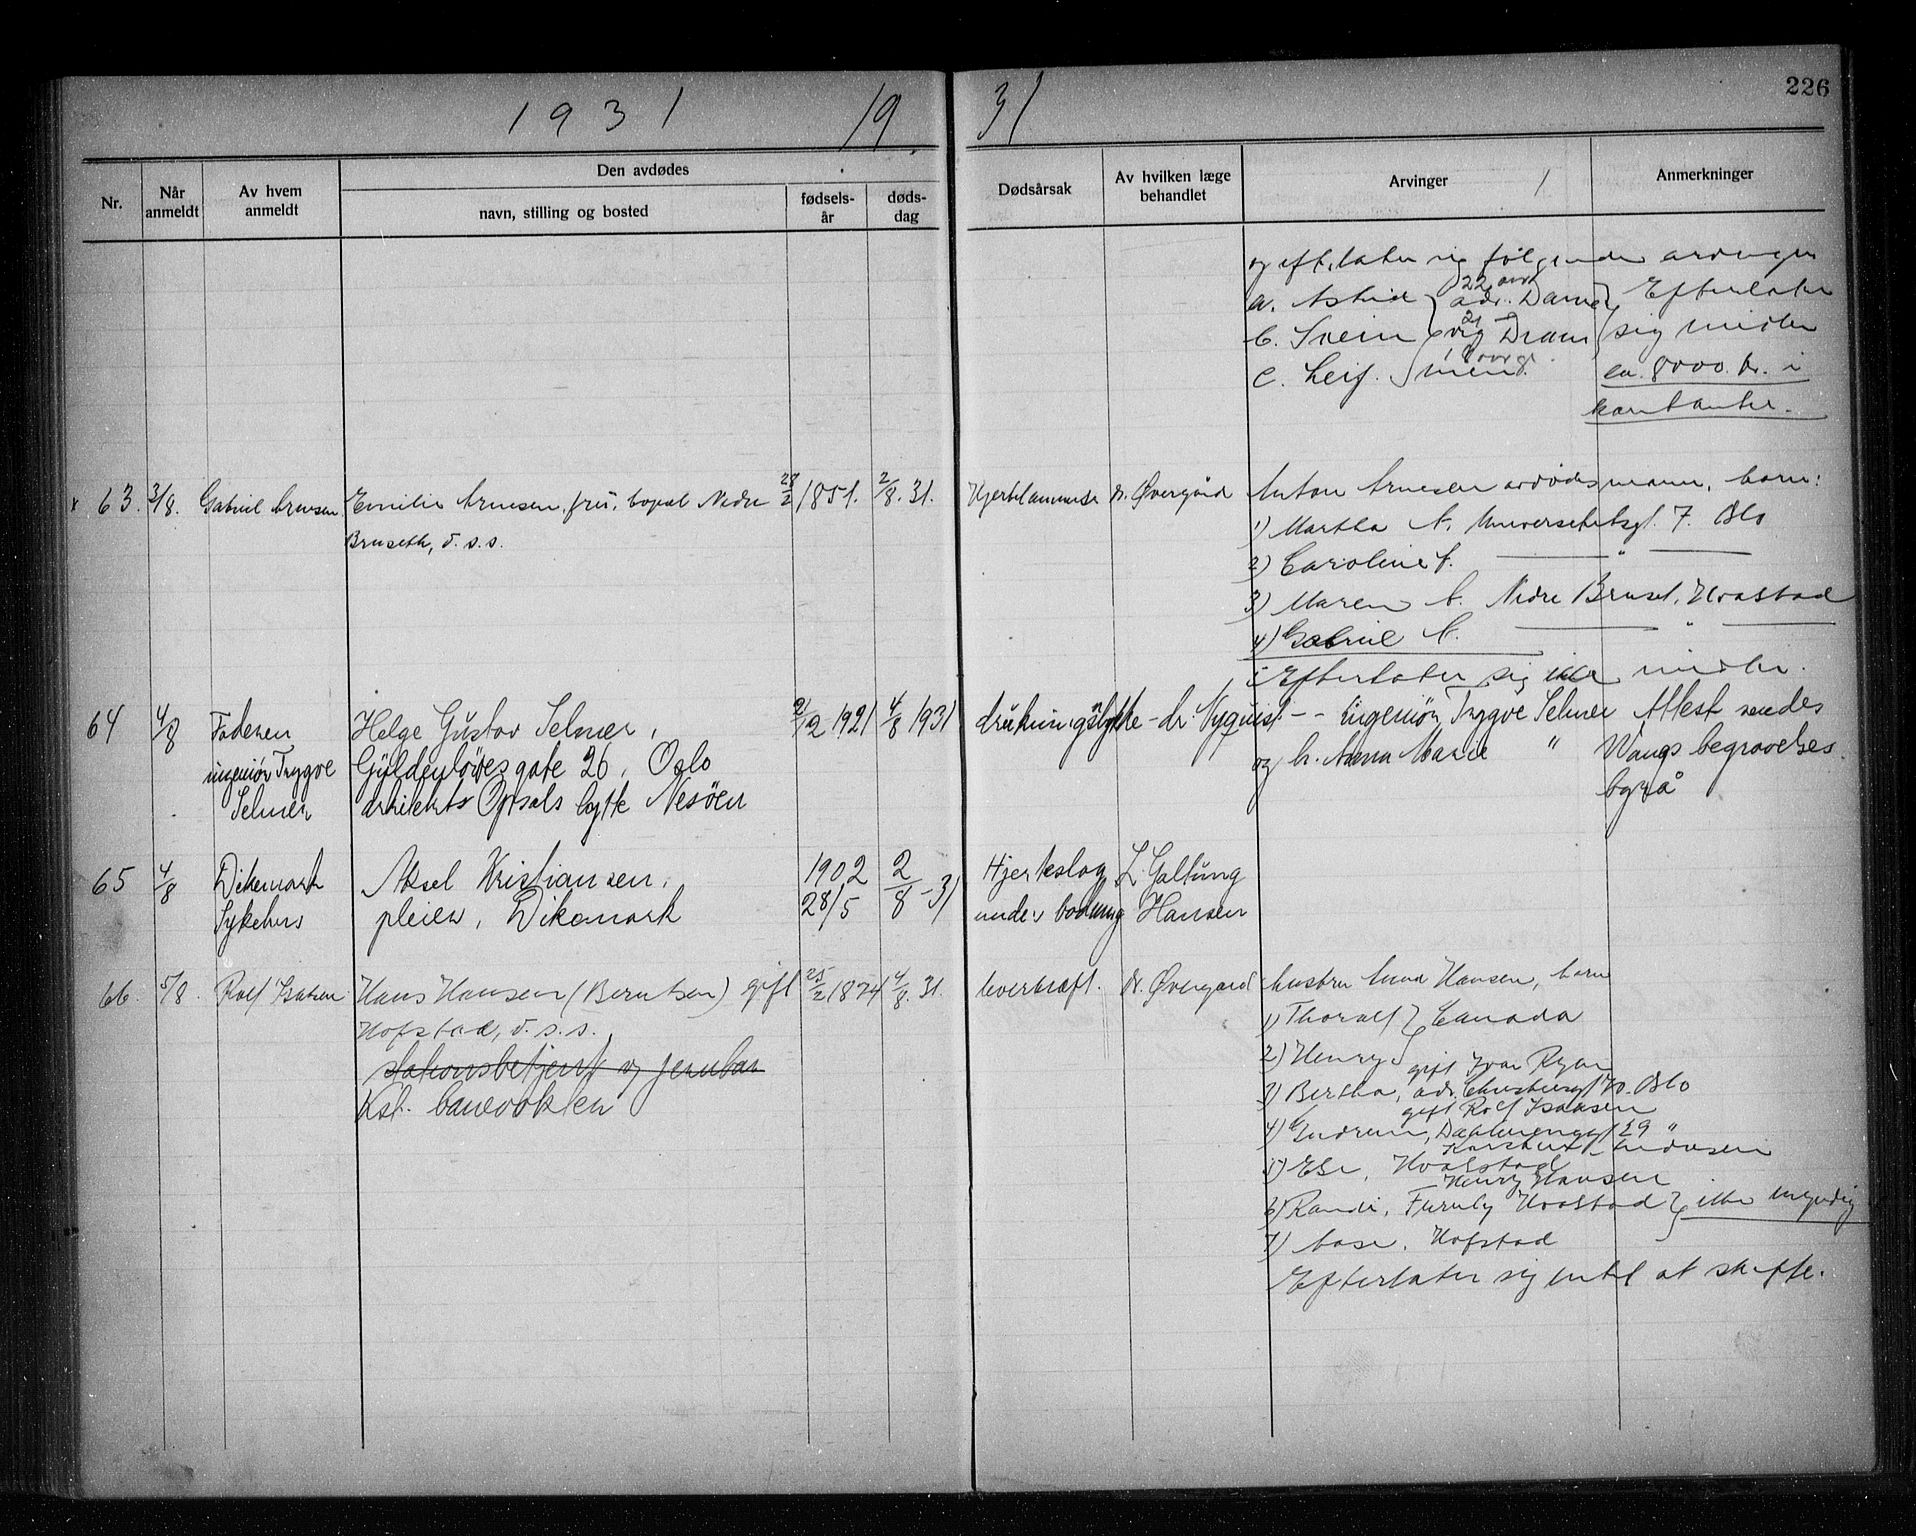 1931 19 31
226
Nr.
Når anmeldt
Av hvem anmeldt
Den avdødes
navn, stilling og bosted
fødselsår
dødsdag
Dødsårsak
Av hvilken læge behandlet
Arvinger
Anmerkninger
og efterlater sig følgende arvinger
a. Astrid 22 år adr. Dam Efterlater
b. Svein 21 vig Dram sig midler
c. Leif. 18 år men. ca. 8000 kr. i
kontanter.
x 63. 3/8. Gabriel Arnesen Emilie Arnesen, frü, bopæl Nedre 28/2 1851. 2/8. 31. Hjertelammelse dr. Øvergård Anton Arnesen avdødes mann, barn:
Bruseth, d. s. s. 1) Martha A. Universitetsgt. 7. Oslo
2) Caroline A. — " —
3) Maren A. Nedre Bruset, Hvalstad
4) Gabriel A. — " —
Efterlater sig ikke midler.
64 4/8 Faderen Helge Güstav Selmer, 2/2 1921 4/8 1931 drükningsülykke - dr. Nyquist - - Ingeniør Trygve Selmer Attest sendes
ingeniør Trygve Gÿldenløvesgate 26, Oslo og h. Anna Marie " Wangs begravelses
Selmer arkitekt Opsals hytte Nesöen byrå
65 4/8 Dikemark Aksel Kristiansen, 1902 2/8 - 31 Hjerteslag L. Galtüng
Sykehus pleier, Dikemark 28/5 under badning Hansen
66. 5/8. Rolf Isaksen Hans Hansen (Berntsen) gift 25/2 1874 4/8. 31. leverkræft. dr. Øvergård hustru Anna Hansen, barn
Hofstad, d. s. s. 1) Thoralf } Canada
stationsbetjent og jernban 2) Henry
Kst. banevokter gift Ivar Ryan
3) Bertha, adr. 70. Oslo
gift Rolf Isaksen
4) Gudrun, Dælenenggt 29 "
5) Else, Hvalstad
Henry Hansen
6) Randi, Furuly Hvalstad } ikke myndig
7) Aase, Hofstad
Efterlater sig intet at skifte.